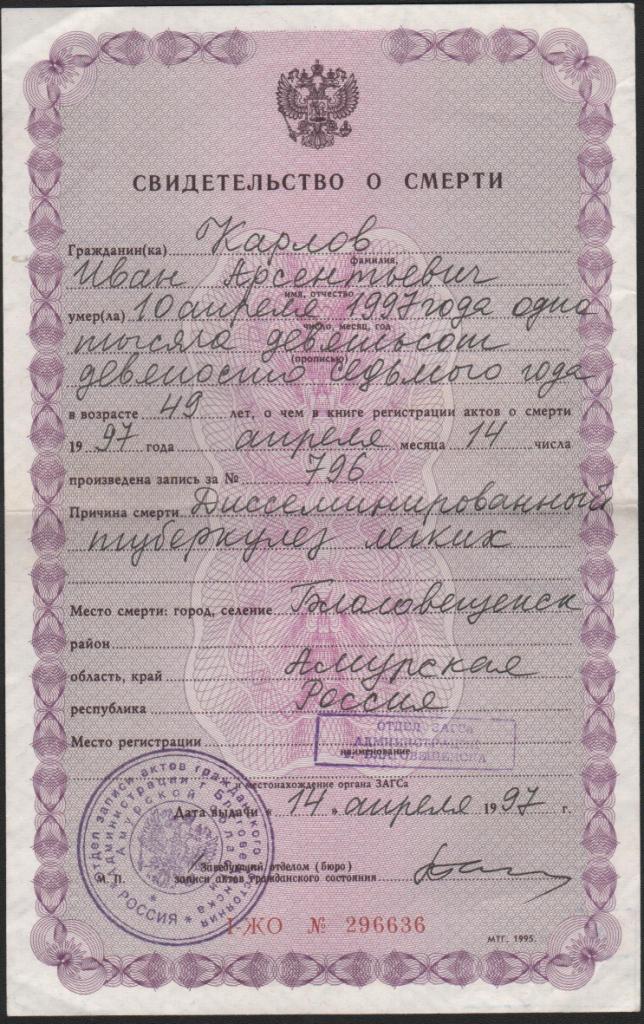 СВИДЕТЕЛЬСТВО О СМЕРТИ
Гражданин(ка) Карлов
фамилия,
Иван Арсентьевич
имя, отчество
умер(ла) 10 апреля 1997 года одна
число, месяц, год
тысяча девятьсот
(прописью)
девяносто седьмого года
в возрасте 49 лет, о чем в книге регистрации актов о смерти
19 97 года апреля месяца 14 числа
произведена запись за № 796
Причина смерти Диссеминированный
туберкулез легких
Место смерти: город, селение Благовещенск
район
область, край Амурская
республика Россия
ОТДЕЛ ЗАГСа
АДМИНИСТРАЦИИ
г. БЛАГОВЕЩЕНСКА
Место регистрации
наименование
и местонахождение органа ЗАГСа
Дата выдачи « 14 » апреля 19 97 г.
Заведующий отделом (бюро)
М. П. записи актов гражданского состояния
Отдел записи актов гражданского состояния
администрации г. Благовещенска
Амурской области
* РОССИЯ *
I-ЖО № 296636
МТГ. 1995.